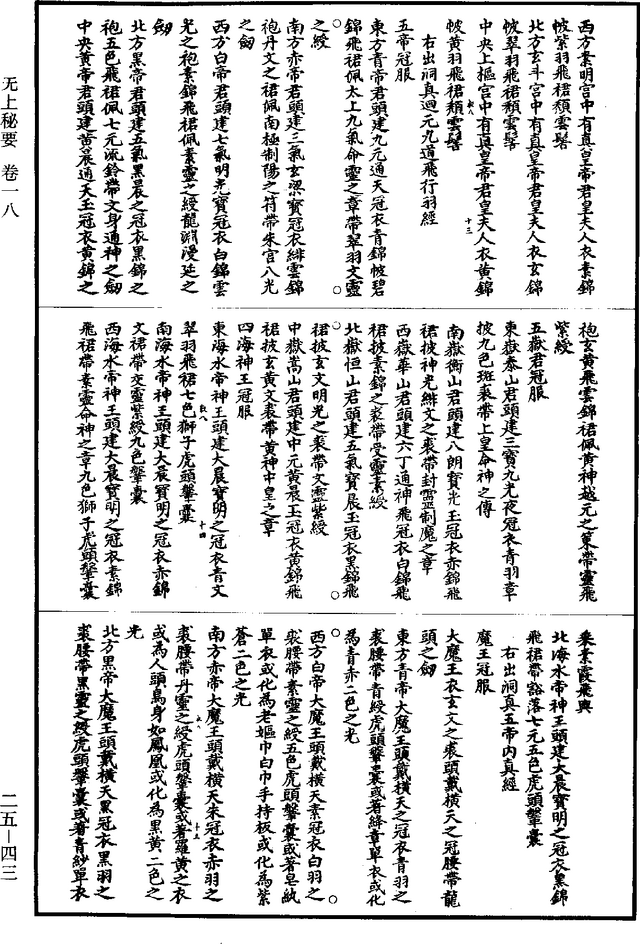 无上秘要 卷一八
西方素明宫中有真皇帝君皇夫人衣素錦
帔紫羽飛裙頽雲髻
北方玄斗宫中有真皇帝君皇夫人衣玄錦
帔翠羽飛裙頽雲髻
中央上樞宫中有真皇帝君皇夫人衣黃錦
帔黃羽飛裙頽雲髻
右出洞真迴元九道飛行羽經
五帝冠服
東方青帝君頭建九元通天冠衣青錦帔碧
錦飛裙佩太上九氣命靈之章帶翠羽文靈
之綬
南方赤帝君頭建三氣玄梁寶冠衣緋雲錦
袍丹文之裙佩南極制陽之符帶朱宫八光
之劒
西方白帝君頭建七氣明光寶冠衣白錦雲
光之袍素錦飛裙佩素靈之綬龍淵漫延之
劒
北方黑帝君頭建五氣黑晨之冠衣黑錦之
袍五色飛裙佩七元流鈴帶文身通神之劒
中央黃帝君頭建黃晨通天玉冠衣黃錦之
袍玄黃飛雲錦裙佩黃神越元之策帶靈飛
紫綬
五嶽君冠服
東嶽泰山君頭建三寶九光夜冠衣青羽章
披九色斑裘帶上皇命神之傳
南嶽衡山君頭建八朗寶光玉冠衣赤錦飛
裙披神光緋文之裘帶封靈制魔之章
西嶽華山君頭建六丁通神飛冠衣白錦飛
裙披素錦之裘帶受靈素綬
北嶽恒山君頭建五氣寶晨玉冠衣黑錦飛
裙披玄文明光之裘帶文靈紫綬
中嶽嵩山君頭建中元黃晨玉冠衣黃錦飛
裙披玄黃文裘帶黃神中皇之章
四海神王冠服
東海水帝神王頭建大晨寶明之冠衣青文
翠羽飛裙七色獅子虎頭鞶囊
南海水帝神王頭建大晨寶明之冠衣赤錦
文裙帶交靈紫綬九色鞶囊
西海水帝神王頭建大晨寶明之冠衣素錦
飛裙帶素靈命神之章九色獅子虎頭鞶囊
乘素霞飛輿
北海水帝神王頭建大晨寶明之冠衣黑錦
飛裙帶豁落七元五色虎頭鞶囊
右出洞真五帝内真經
魔王冠服
大魔王衣玄文之裘頭戴橫天之冠腰帶龍
頭之劒
東方青帝大魔王頭戴橫天之冠衣青羽之
裘腰帶青綬虎頭鞶囊或著絳章單衣或化
為青赤二色之光
西方白帝大魔王頭戴橫天素冠衣白羽之
裘腰帶素靈之綬五色虎頭鞶囊或著皂紈
單衣或化為老嫗巾白巾手持板或化為紫
蒼二色之光
南方赤帝大魔王頭戴橫天朱冠衣赤羽之
裘腰帶丹靈之綬虎頭鞶囊或著羅黃之衣
或為人頭鳥身如鳳凰或化為黑黃二色之
光
北方黑帝大魔王頭戴橫天黑冠衣黑羽之
裘腰帶黑靈之綬虎頭鞶囊或著青紗單衣
二五—四三